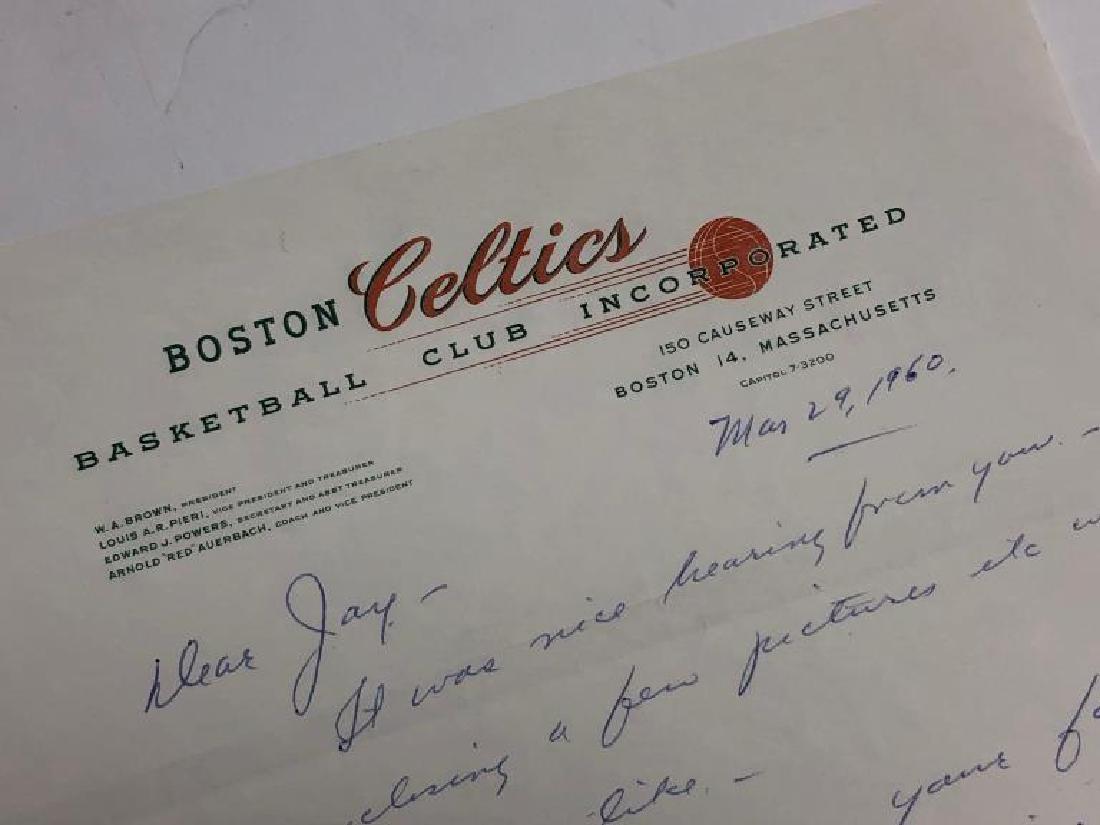 BOSTON Celtics
BASKETBALL CLUB INCORPORATED
150 CAUSEWAY STREET
BOSTON 14, MASSACHUSETTS
CAPITOL 7-3200
W. A. BROWN, PRESIDENT
LOUIS A. R. PIERI, VICE PRESIDENT AND TREASURER
EDWARD J. POWERS, SECRETARY AND ASST TREASURER
ARNOLD "RED" AUERBACH, COACH AND VICE PRESIDENT
Mar 29, 1960.
Dear Jay -
It was nice hearing from you. -
closing a few pictures etc
like. - your